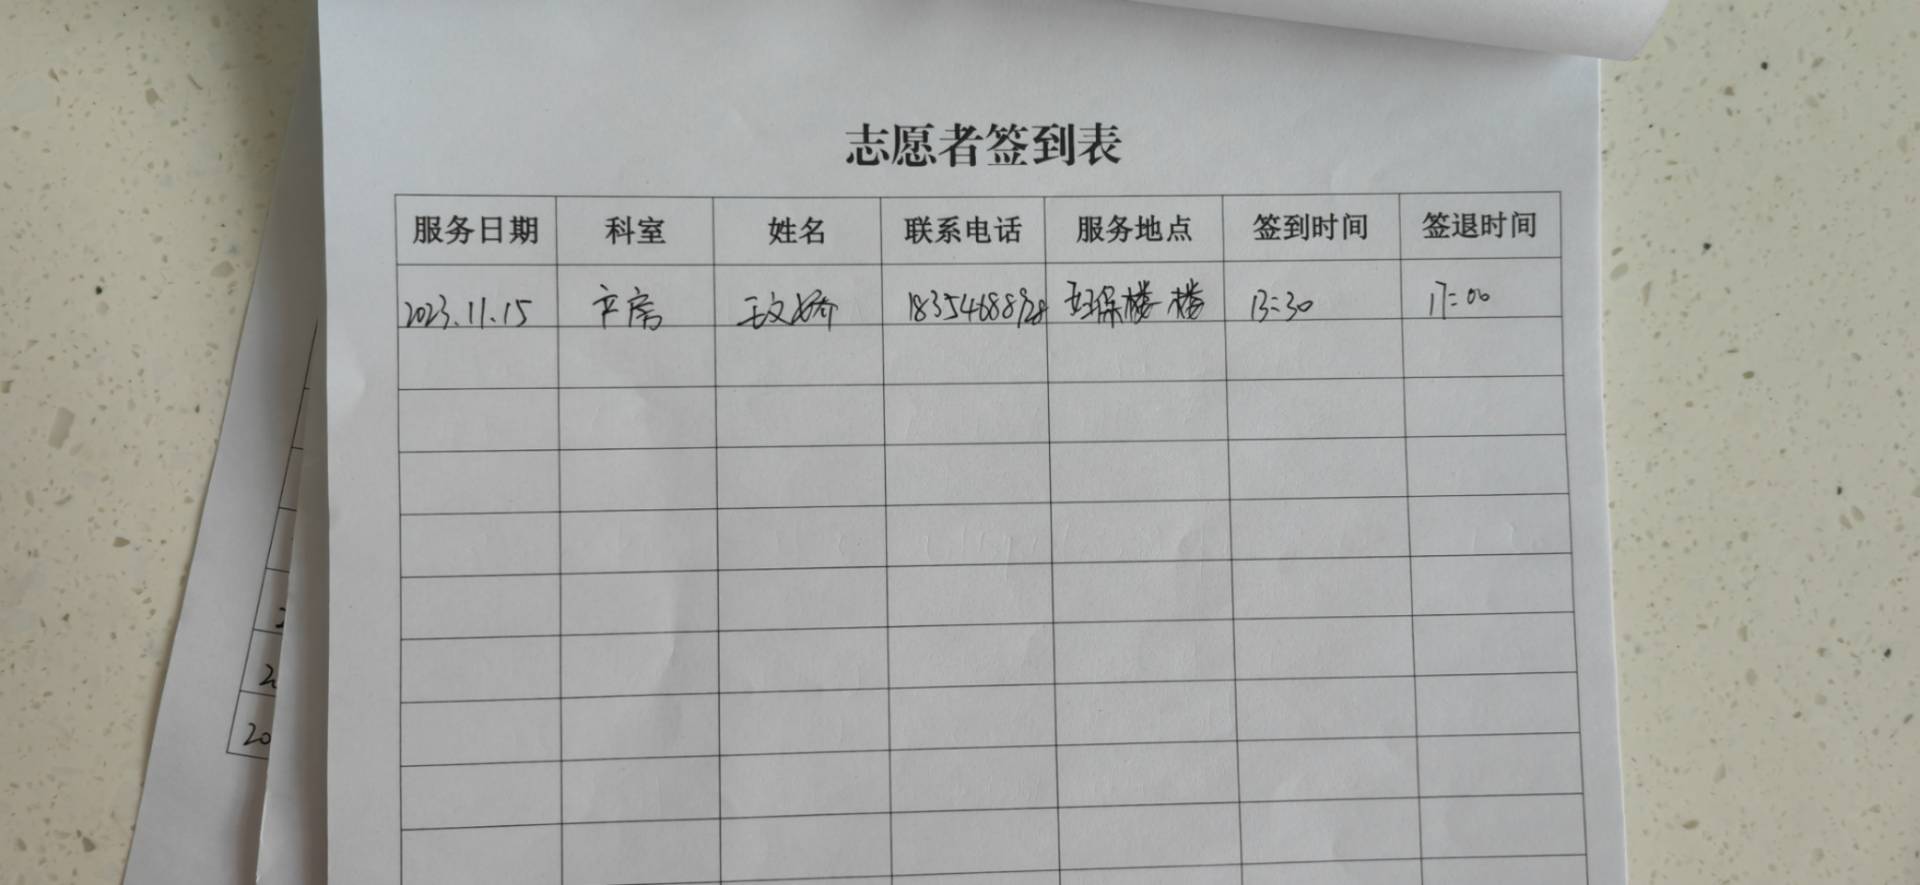 志愿者签到表
服务日期 科室 姓名 联系电话 服务地点 签到时间 签退时间
2023.11.15 产房 王文娇 楼 13:30 17:00
20